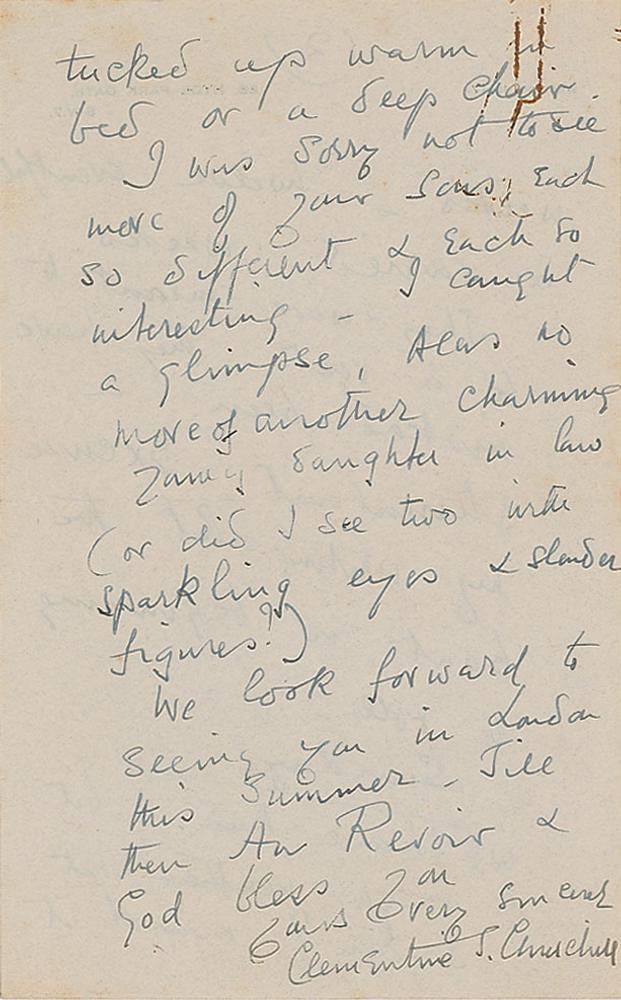 tucked up warm in
bed or a deep chair.
I was sorry not to see
more of your sons; Each
so different & Each so
interesting - I caught
a glimpse, Alas no
more of another charming
young daughter in law
(or did I see two with
sparkling eyes & slender
figures?)
We look forward to
seeing you in London
this Summer - Till
then Au Revoir &
God bless you
Yours very sincerely
Clementine S. Churchill